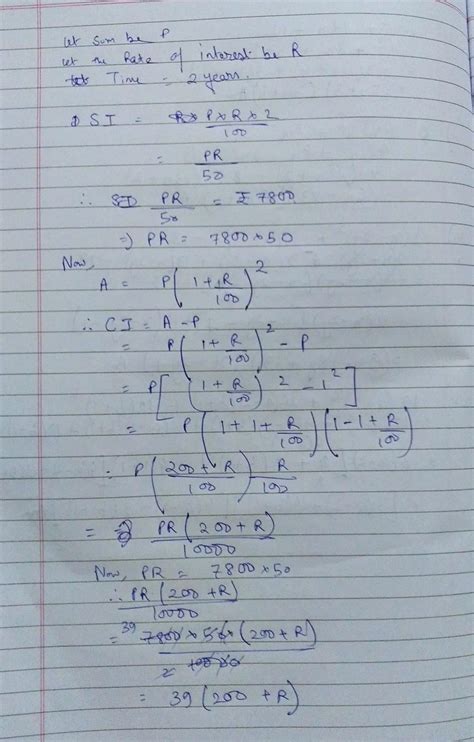 let sum be P
let the Rate of interest be R
Time = 2 years.
SI = P×R×2/100
= PR/50
∴ PR/50 = ₹7800
⇒ PR = 7800×50
Now,
A = P(1+R/100)^2
∴ CI = A-P
= P(1+R/100)^2 - P
= P[(1+R/100)^2 - 1^2]
= P(1+1+R/100)(1-1+R/100)
= P(200+R/100) R/100
= PR(200+R)/10000
Now, PR = 7800×50
∴ PR(200+R)/10000
= 39 7800×50(200+R)/2 10000
= 39(200+R)